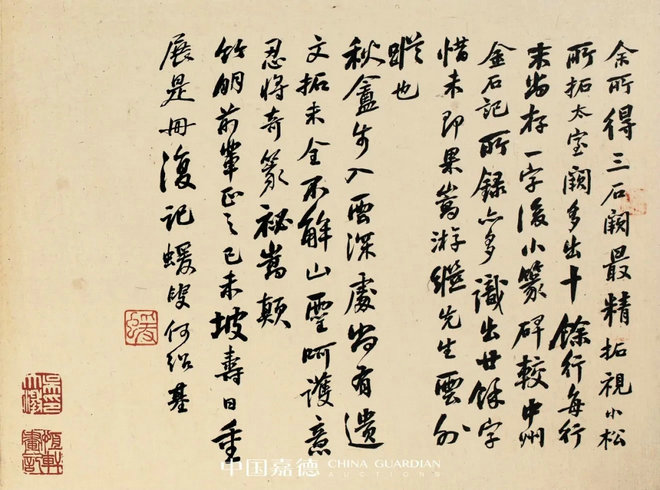 余所得三石阙最精拓視小松
所拓太室阙多出十餘行每行
末尚存一字後小篆碑較中州
金石記所錄亦多識出廿餘字
惜未即果嵩游繼先生雲外
蹤也
秋盦步入雲深處尚有遺
文拓未全不解山靈呵護意
忍將奇篆祕嵩顛
竹朋前輩正之己未坡壽日重
展是冊復記蝯叟何紹基
蝯
中国嘉德 CHINA GUARDIAN
AUCTIONS